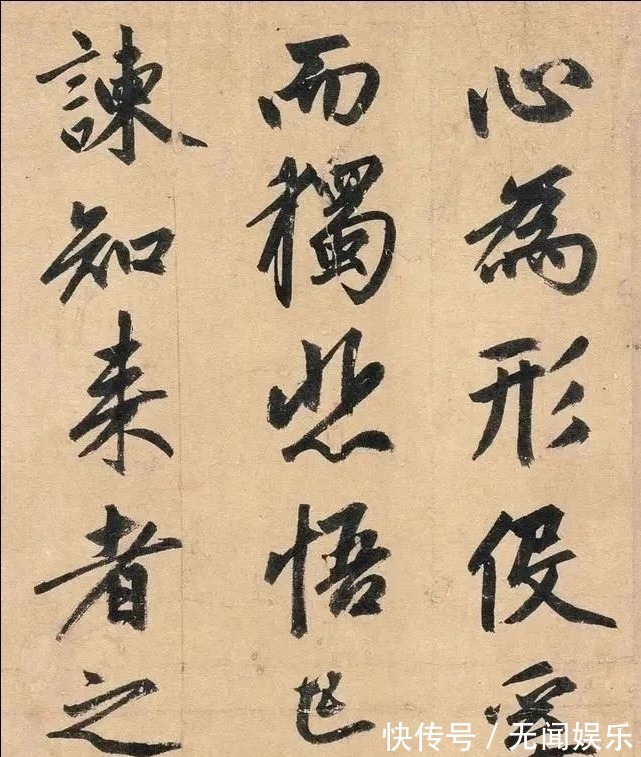 心為形役奚
而獨悲悟已
諫知来者之
快传号/无闻娱乐